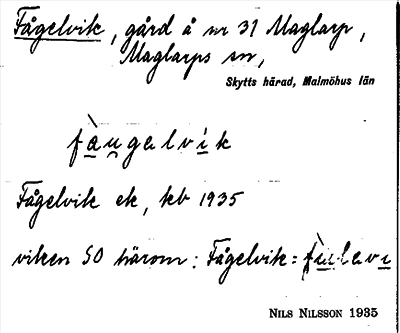 Fågelvik, gård å nr 31 Maglarp,
Maglarps sn,
Skytts härad, Malmöhus län
fàu̯gəlvik
Fågelvik ek, kb 1935
viken SO härom: Fågelvik:
NILS NILSSON 1935